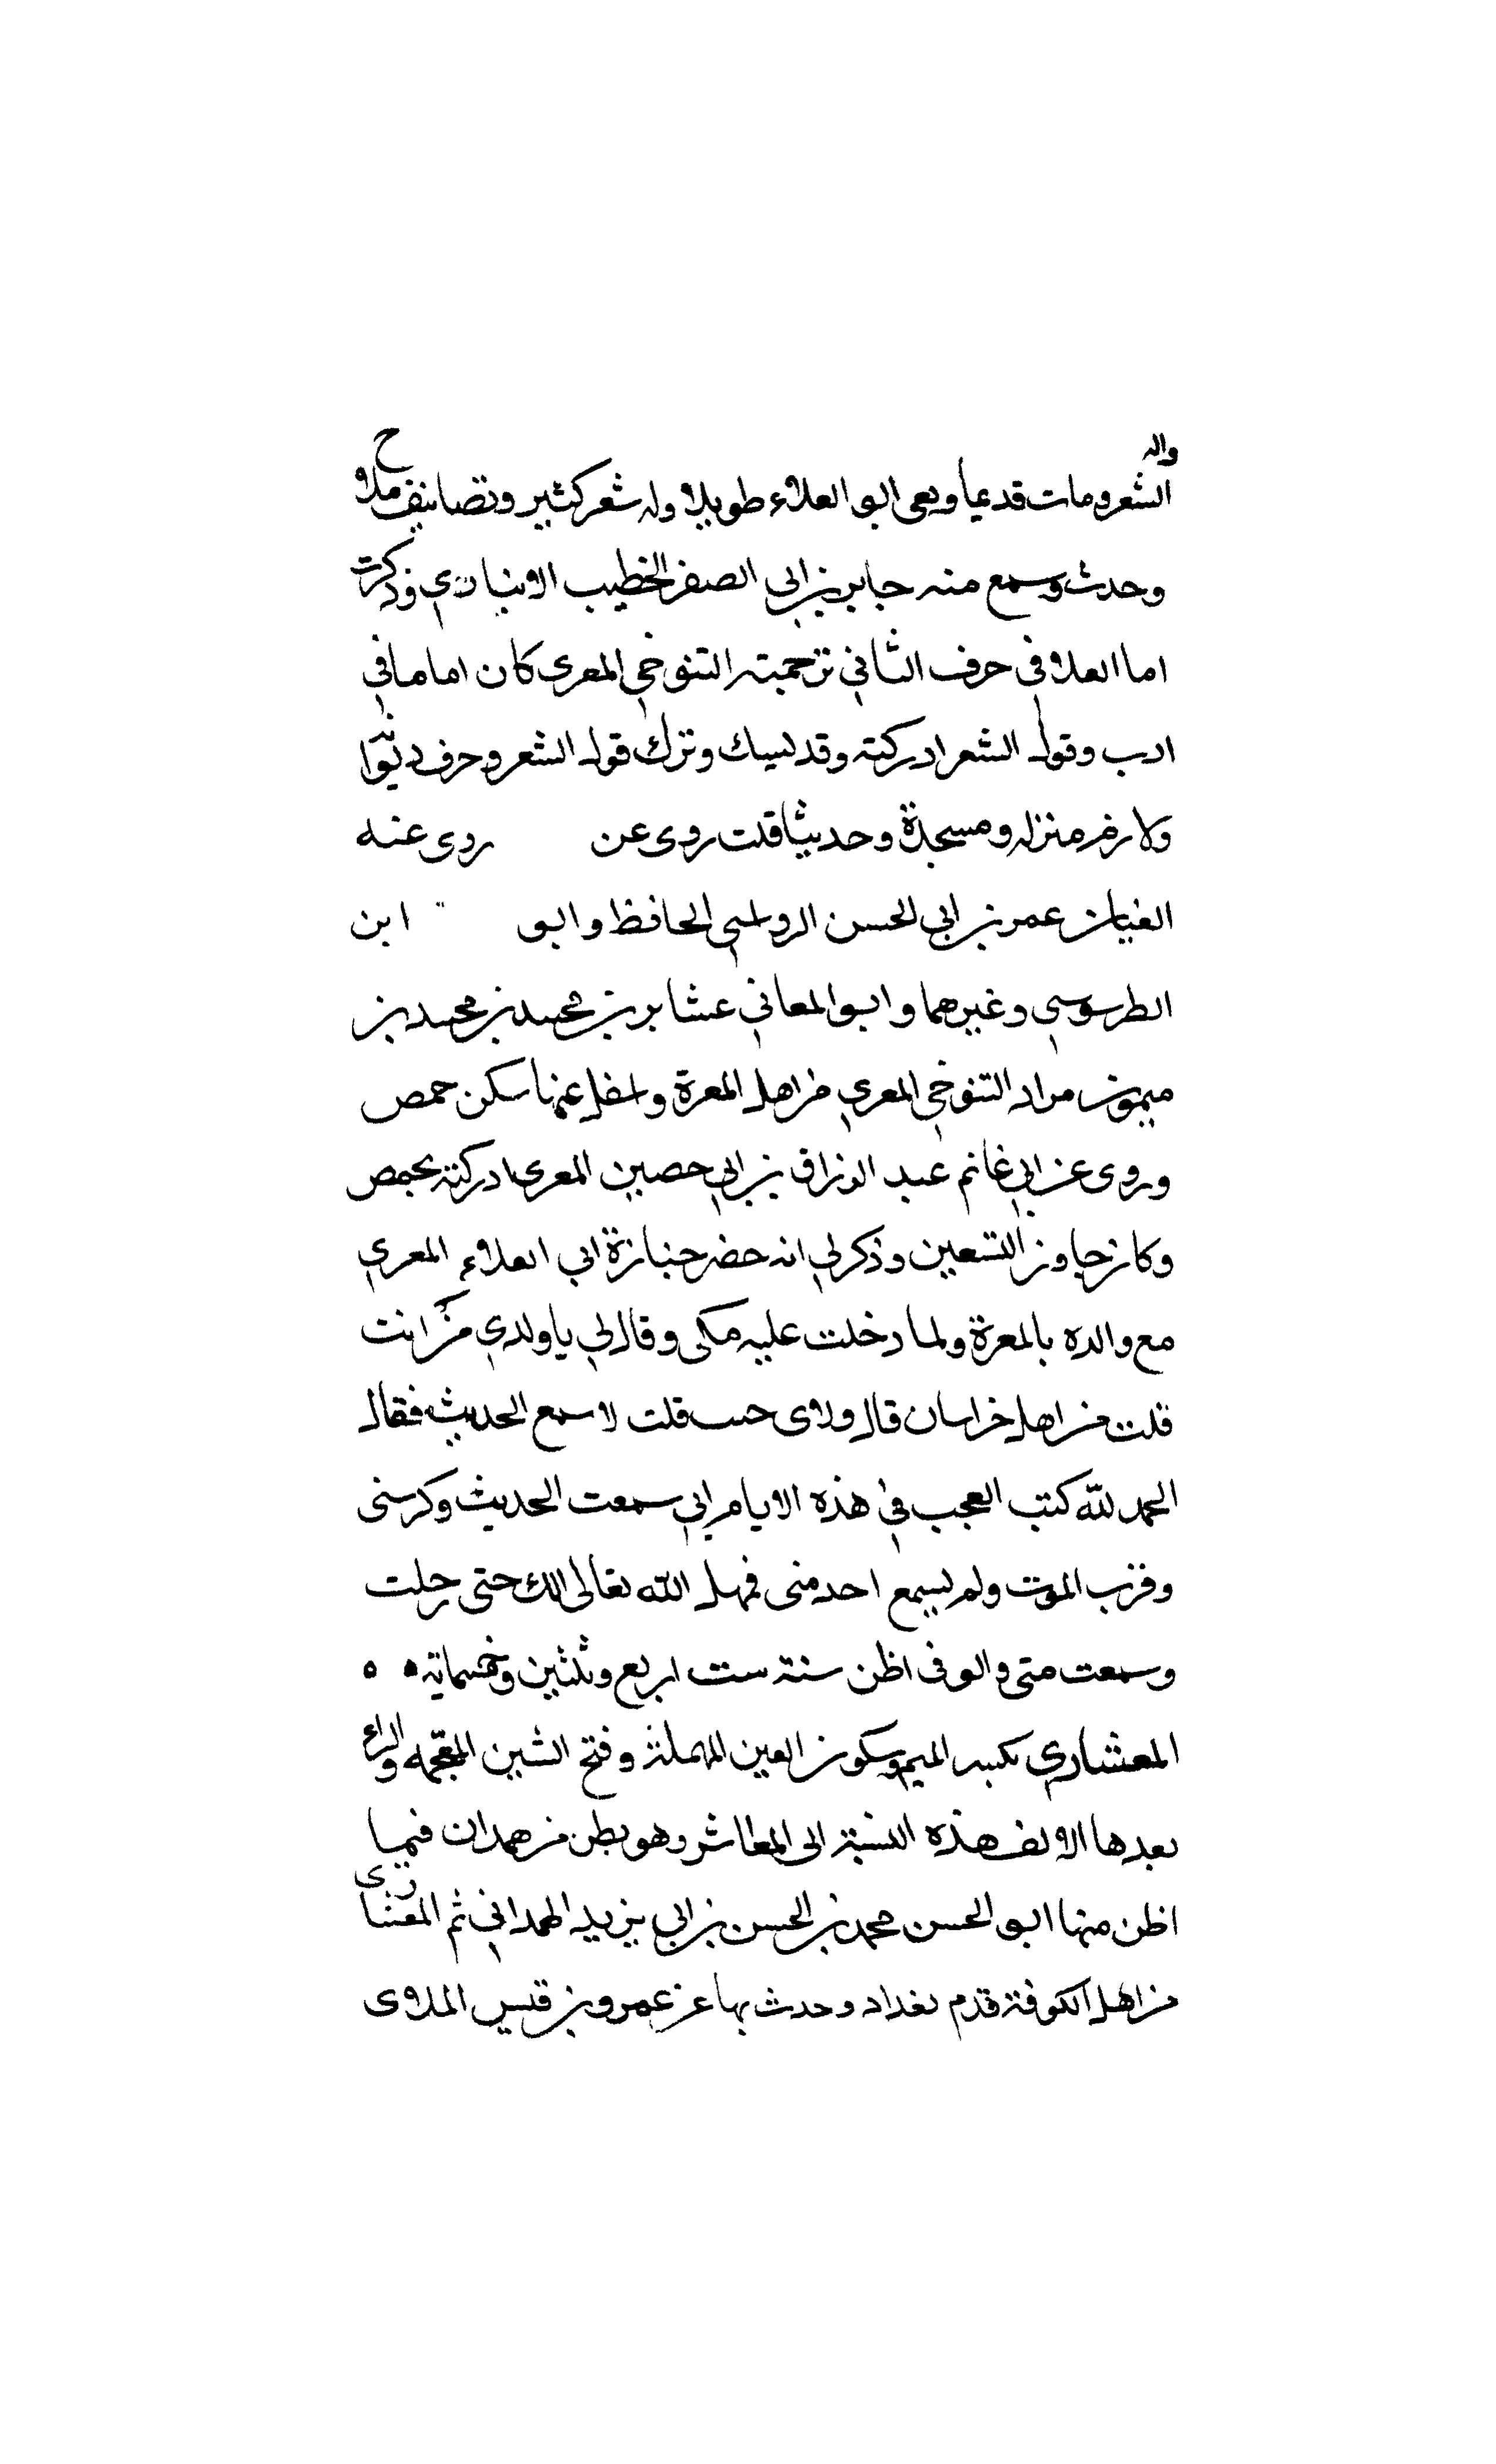 واله
الشعر ومات قديما وبقى ابو العلاء طويلا وله شعر كثير وتصانيف ملاح
وحدث وسمع منه جابر بن ابى الصقر الخطيب الانبارى وذكرت
اما العلا فى حرف الثانى ترجمته التنوخى المعرى كان اماما فى
ادب وقول الشعر ادركته وقد لسك وترك قول الشعر وحرف ديوا
ولازم منزله ومسجدة وحديثا قلت روى عن روى عنه
الفتيان عمر بن ابى الحسن الرواسى الحافظ وابو ابن
الطرسوسى وغيرهما وابو المعانى عشاير بن محمد بن محمد بن
ميمون مراد التنوخى المعرى من اهل المعرة واسفل عنها سكن حمص
وروى عن ابى غانم عبد الرزاق بن ابى حصين المعرى ادركته بحمص
وكان جاوز التسعين وذكر لى انه حضر جنازة ابى العلاء المعرى
مع والده بالمعرة ولما دخلت عليه مكى وقال لى يا ولدى من انت
قلت من اهل خراسان قال ولاى حىب قلت لاسمع الحديث فقال
الحمد لله كنت العجب فى هذه الايام انى سمعت الحديث وكرسنى
وقرب الموت ولم يسمع احد منى فمهل الله تعالى لك حتى رحلت
وسمعت متى والوفى اظن سنة ست اربع وثلثين وخمسماية ه ه
المعشارى بكسر الميم وسكون العين المهملة وفتح الشين المعجمه والراء
بعدها الالف هذه النسبة الى المعاشر وهو بطن من همدان فيما
اظن منها ابو الحسن محمد بن الحسن بن ابى يزيد الهمدانى ثم المعشارى
من اهل الكوفة قدم بغداد وحدث بها عن عمرو بن قيس الملاى